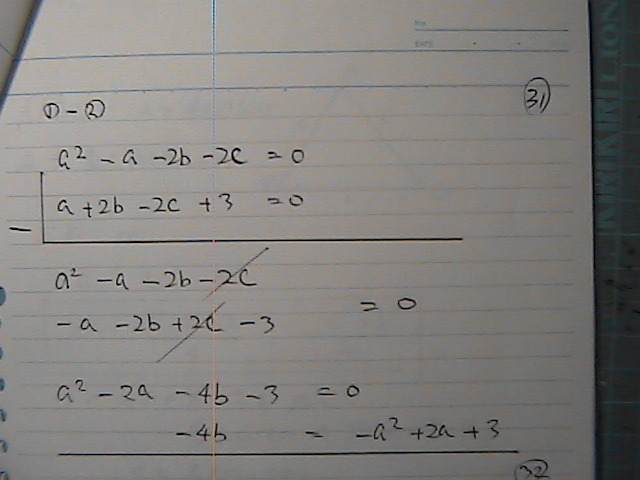 No.
DATE
㉛
① - ②
a² - a - 2b - 2c = 0
a + 2b - 2c + 3 = 0
−
a² - a - 2b - 2c
- a - 2b + 2c - 3
= 0
a² - 2a - 4b - 3 = 0
- 4b = - a² + 2a + 3
㉜